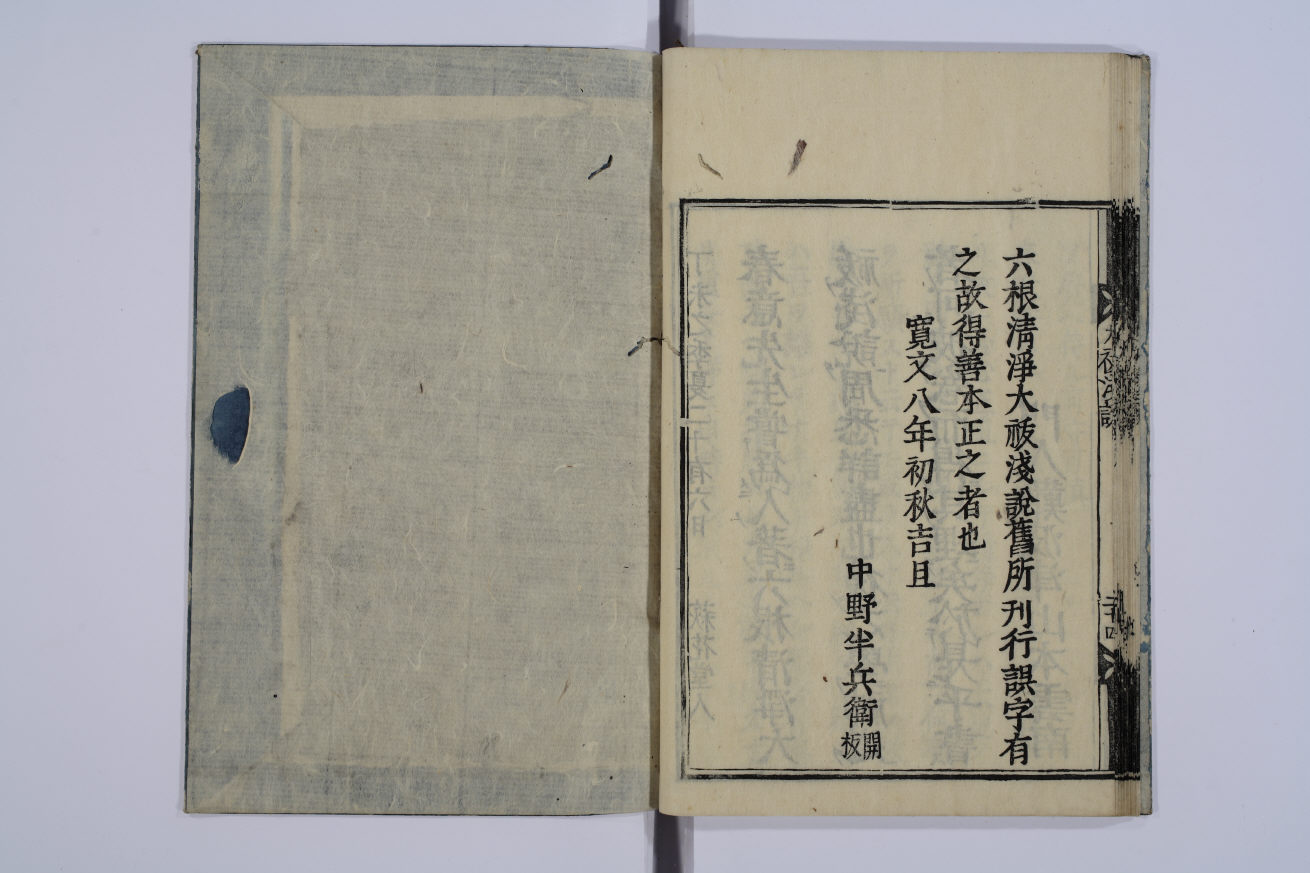 六根淸淨大祓淺說舊所刊行誤字有
之故得善本正之者也
寛文八年初秋吉且
中野半兵衛開板